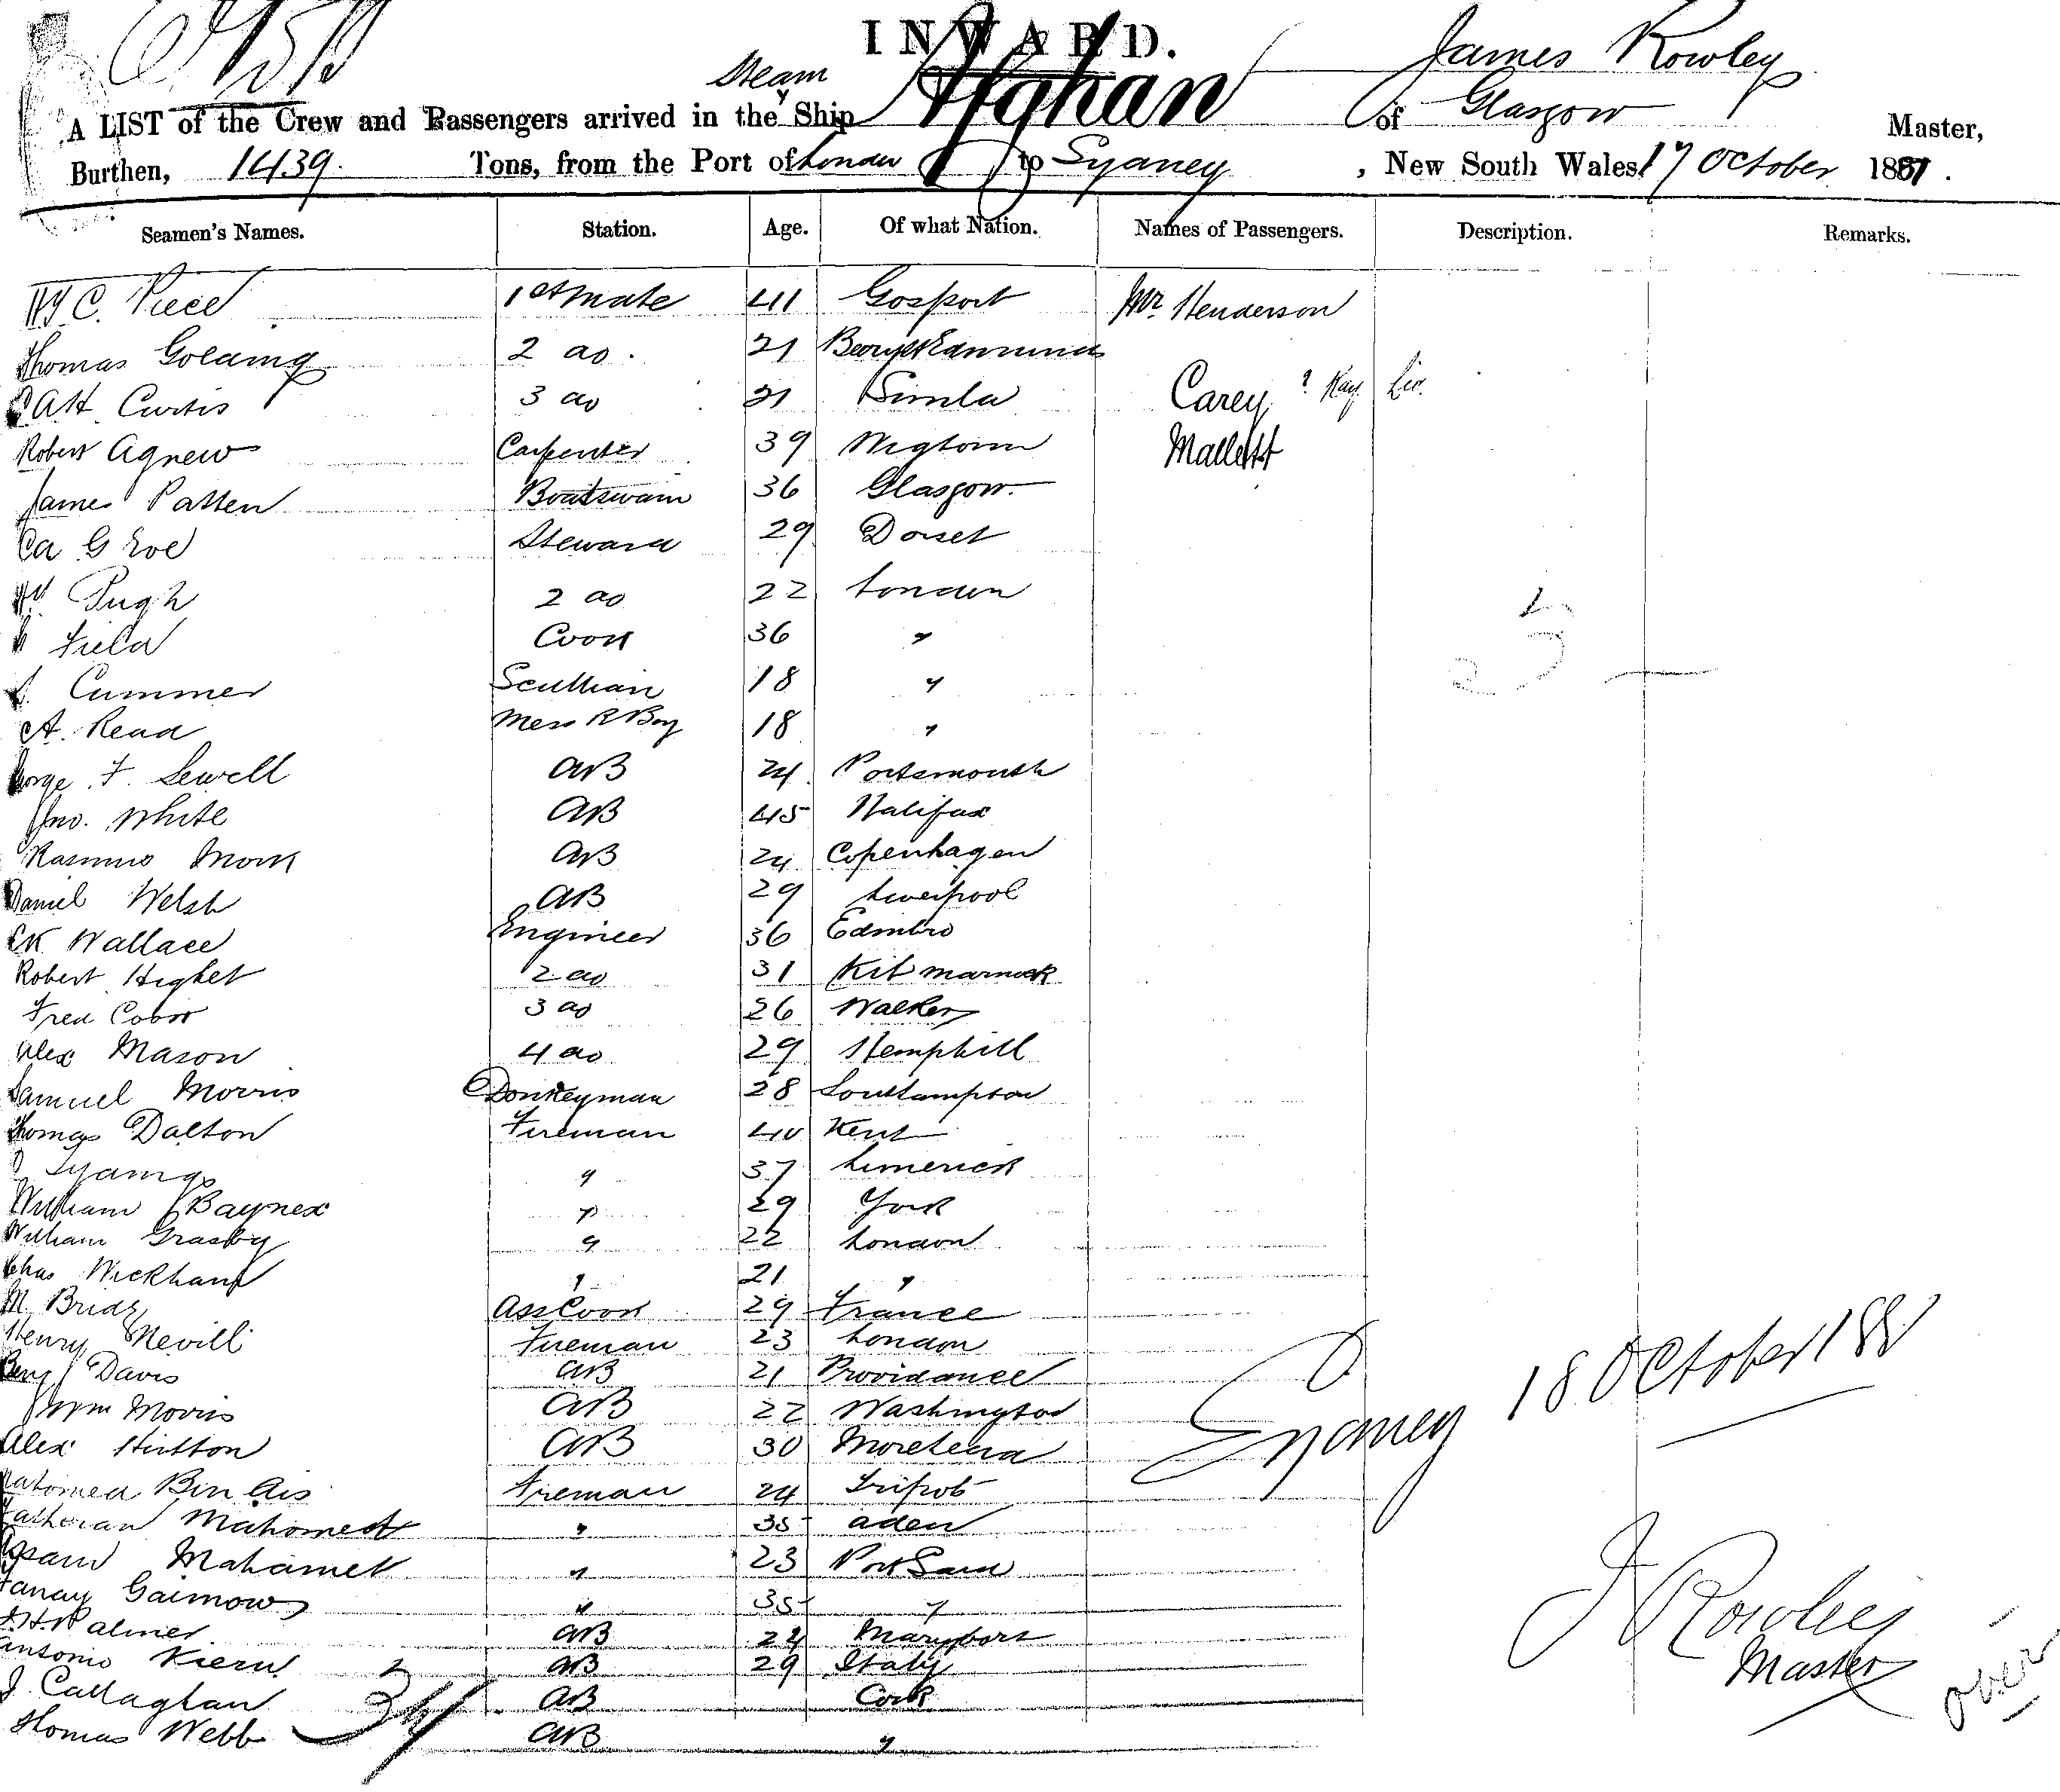 INWARD.
Steam
James Rowley
A LIST of the Crew and Passengers arrived in the Ship Afghan of Glasgow Master,
Burthen, 1439. Tons, from the Port of London to Sydney, New South Wales 17 October 1881.
Seamen's Names. Station. Age. Of what Nation. Names of Passengers. Description. Remarks.
C. 1st mate 41 Gosport Mr. Henderson
Thomas Golding 2 do. 21
Curtis 3 do 21 Simla Carey ? Kay
Robert Agnew Carpenter 39 Wigtown Mallett
James Patten Boatswain 36 Glasgow
Steward 29 Dorset
Pugh 2 do 22 London
Field Cook 36 "
Cummer 18 "
A. Read Mess R Boy 18 "
George F. Sewell AB 24 Portsmouth
Jno. White AB 45 Halifax
AB 24 Copenhagen
Daniel Welsh AB 29 Liverpool
Wallace Engineer 36 Edinbro
Robert Highet 2 do 31 Kilmarnock
Fred 3 do 26 Walker
Alex Mason 4 do 29 Hemphill
Samuel Morris Donkeyman 28 Southampton
Thomas Dalton Fireman 40 Kent
" 37 Limerick
William Baynex " 29 York
William Grasby " 22 London
Chas Wickham " 21 "
M. Ass Cook 29 France
Henry Nevill Fireman 23 London
Benj Davis AB 21 Providance
Wm Morris AB 22 Washington
Alex Hutton AB 30 Sydney 18 October 1881
Mahomed Bin Fireman 24
Mahomed " 35 Aden
Mahamet " 23 Port Said
Gaimow " 35 "
Palmer AB 24 Maryport J Rowley
Antonio AB 29 Italy Master
J. Callaghan AB Cork over
Thomas Webb 34 AB "